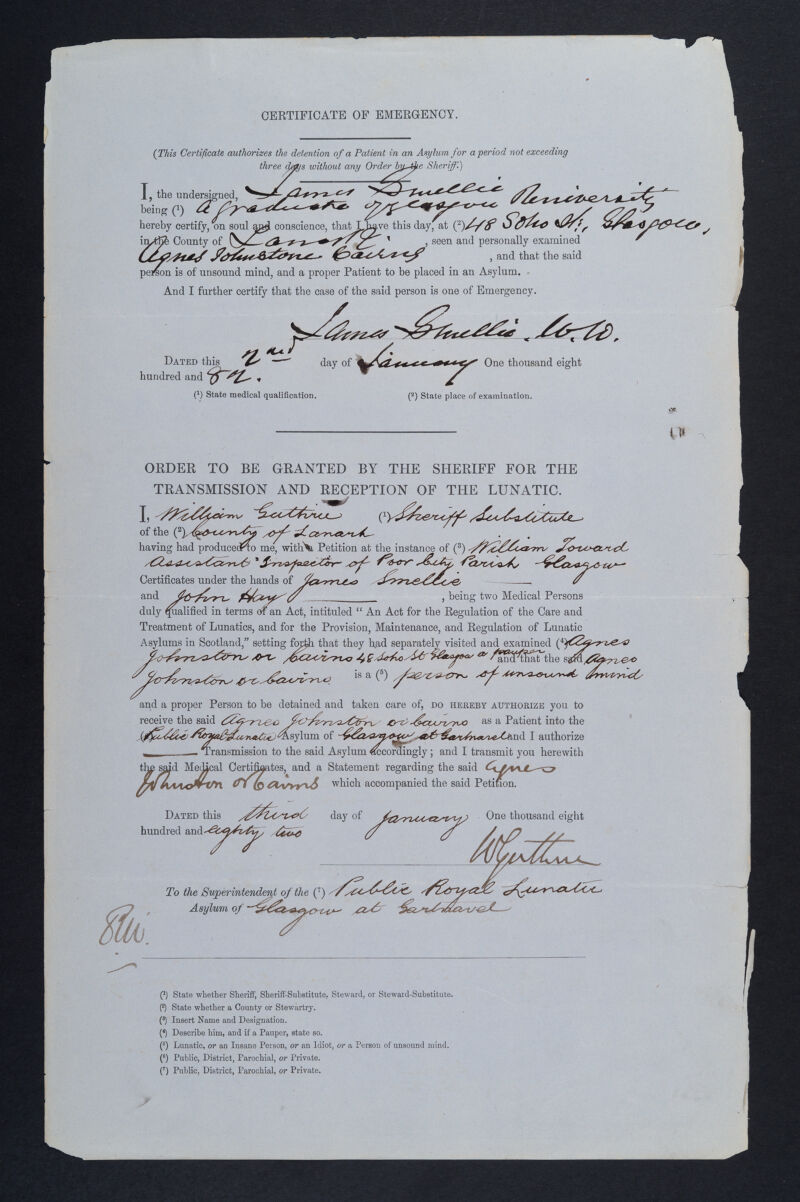 CERTIFICATE OF EMERGENCY.
(This Certificate authorizes the detention of a Patient in an Asylum for a period not exceeding
three days without any Order by the Sheriff.)
I, the undersigned, James Smellie
being (¹) a graduate of Glasgow University
hereby certify, on soul and conscience, that I have this day, at (²) 48 Soho St., Glasgow,
in the County of Lanark, seen and personally examined
Agnes Johnstone Cairns, and that the said
person is of unsound mind, and a proper Patient to be placed in an Asylum.
And I further certify that the case of the said person is one of Emergency.
James Smellie. M.D.
DATED this 2nd day of January One thousand eight
hundred and 82.
(¹) State medical qualification. (²) State place of examination.
ORDER TO BE GRANTED BY THE SHERIFF FOR THE
TRANSMISSION AND RECEPTION OF THE LUNATIC.
I, William Guthrie (¹) Sheriff Substitute
of the (²) County of Lanark
having had produced to me, with a Petition at the instance of (³) William Toward
Assistant Inspector of Poor City Parish Glasgow
Certificates under the hands of James Smellie
and John Hay, being two Medical Persons
duly qualified in terms of an Act, intituled "An Act for the Regulation of the Care and
Treatment of Lunatics, and for the Provision, Maintenance, and Regulation of Lunatic
Asylums in Scotland," setting forth that they had separately visited and examined (⁴) Agnes
Johnston or Cairns 48 Soho St Glasgow a pauper and that the said Agnes
Johnston or Cairns is a (⁵) person of unsound mind
and a proper Person to be detained and taken care of, DO HEREBY AUTHORIZE you to
receive the said Agnes Johnston or Cairns as a Patient into the
(⁶) Public Royal Lunatic Asylum of Glasgow at Gartnavel and I authorize
Transmission to the said Asylum accordingly; and I transmit you herewith
the said Medical Certificates, and a Statement regarding the said Agnes
Johnston or Cairns which accompanied the said Petition.
DATED this third day of January One thousand eight
hundred and eighty two
WGuthrie
To the Superintendent of the (⁷) Public Royal Lunatic
Asylum of Glasgow at Gartnavel
(¹) State whether Sheriff, Sheriff-Substitute, Steward, or Steward-Substitute.
(²) State whether a County or Stewartry.
(³) Insert Name and Designation.
(⁴) Describe him, and if a Pauper, state so.
(⁵) Lunatic, or an Insane Person, or an Idiot, or a Person of unsound mind.
(⁶) Public, District, Parochial, or Private.
(⁷) Public, District, Parochial, or Private.